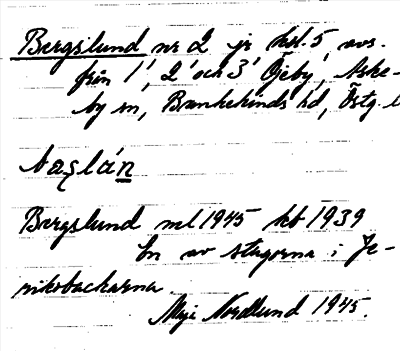 Bergslund nr 2 jr kol. 5 avs.
från 1', 2' och 3' Öjeby, Aske-
by sn, Bankekinds hd, Östg. l
baʂlán
Bergslund ml 1945 kb 1939
En av stugorna i Je-
rikobackarna.
Maj Nordlund 1945.